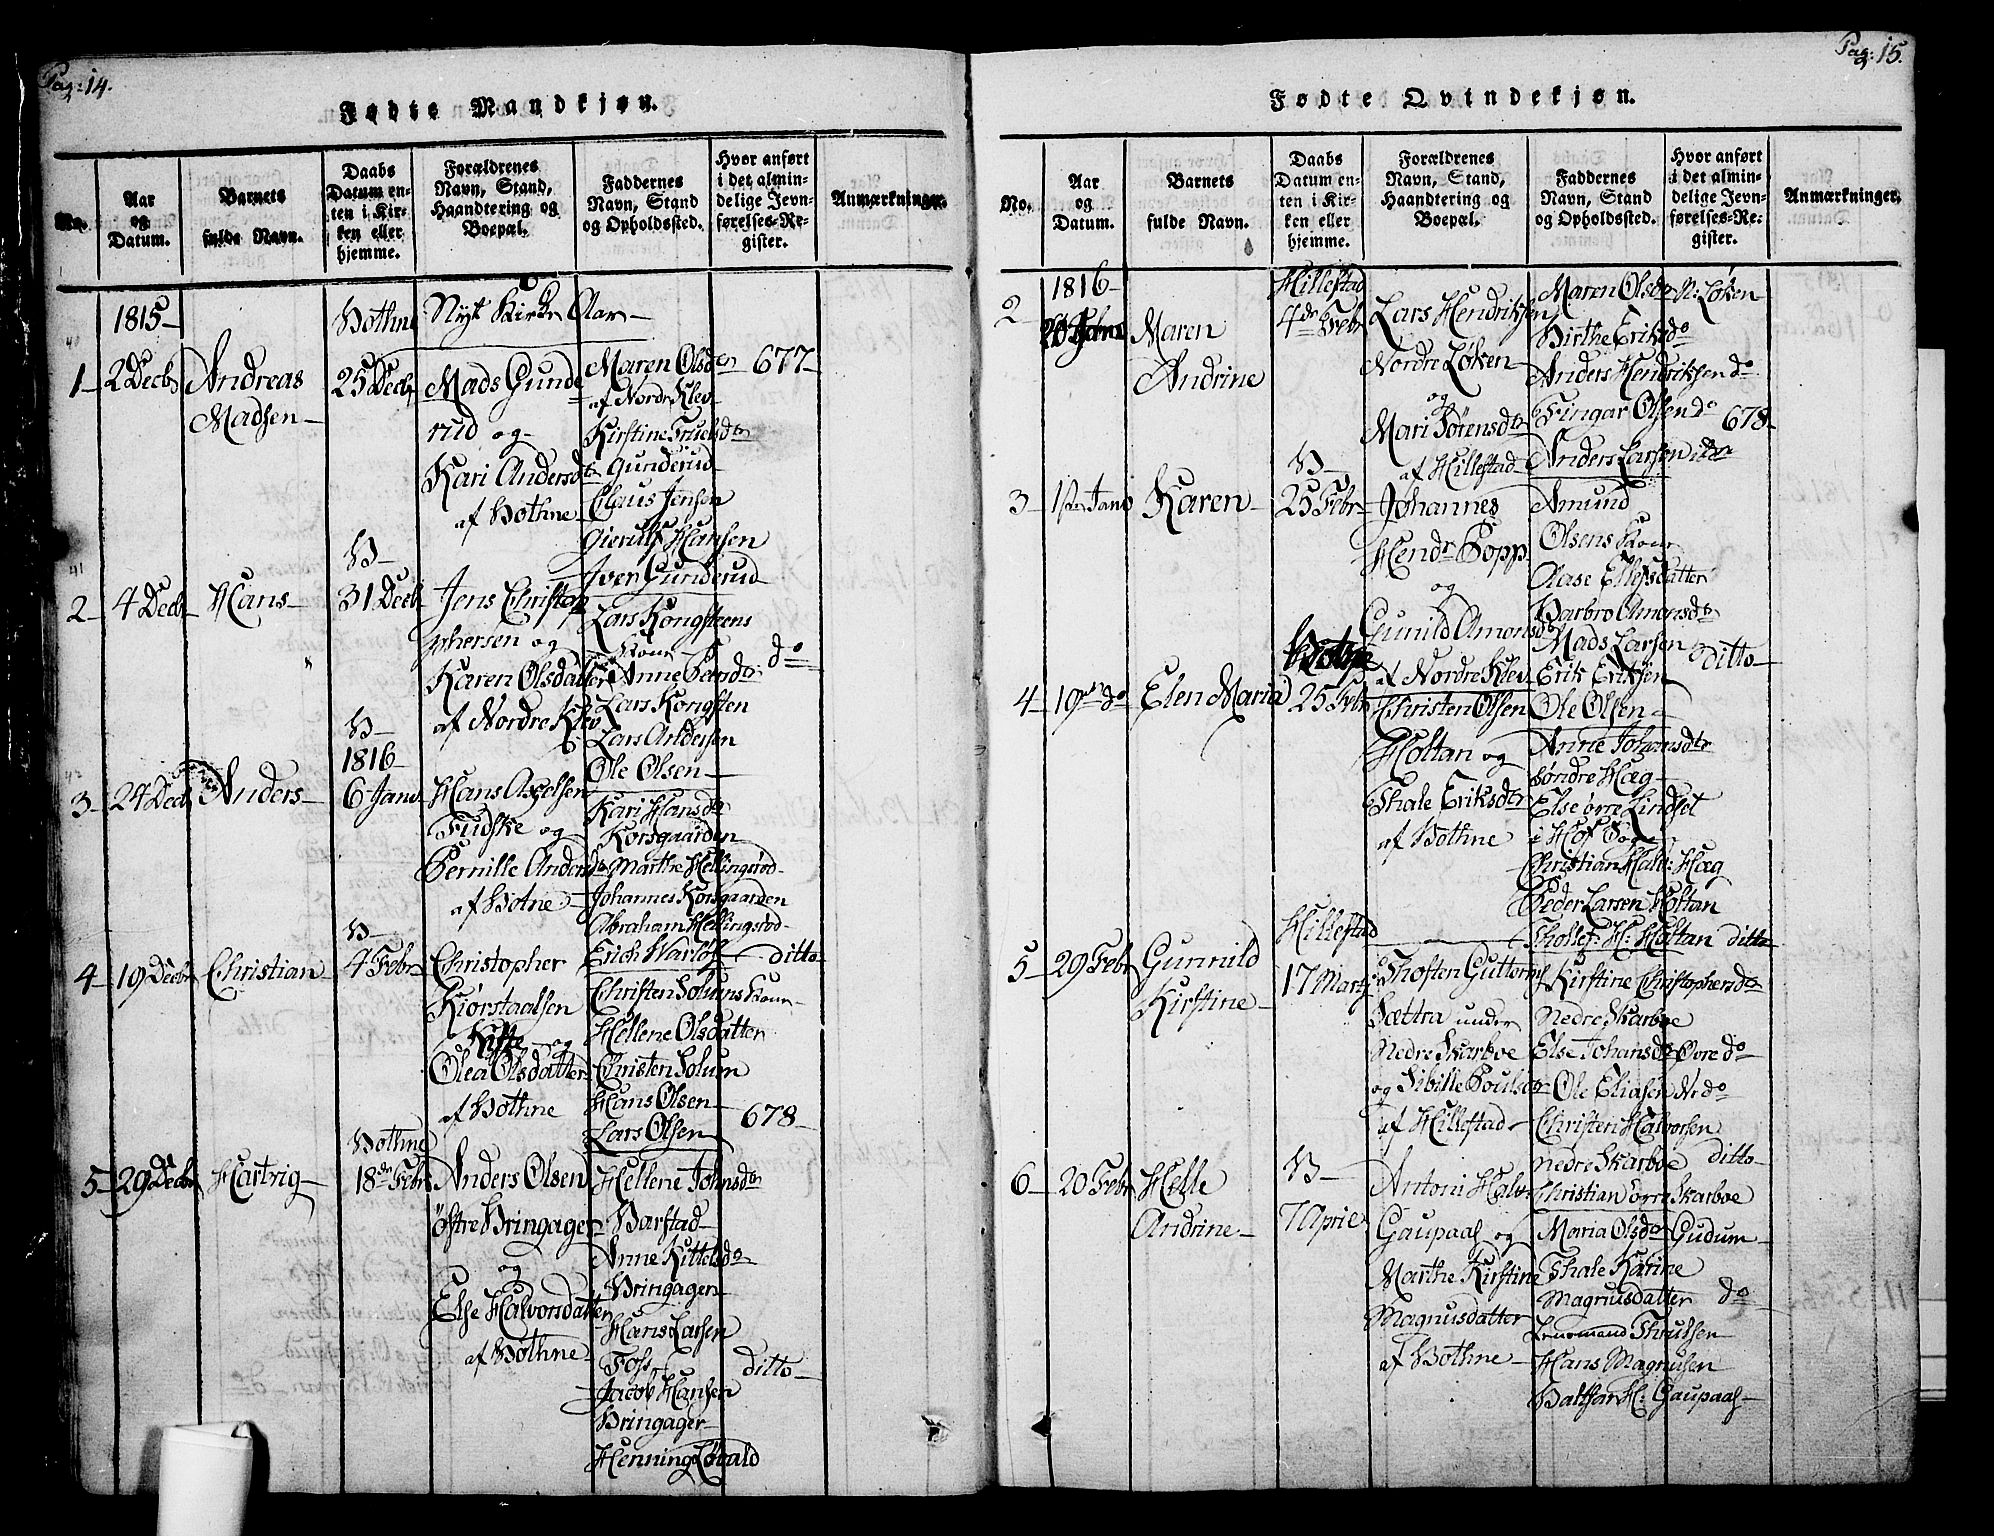 Pag: 14.
Fødte Mandkjøn.
No.
Aar og Datum.
Barnets fulde Navn.
Daabs Datum enten i Kirken eller hjemme.
Forældrenes Navn, Stand, Haandtering og Boepæl.
Faddernes Navn, Stand og Opholdssted.
Hvor anført i det almindelige Jevnførelses-Register.
Anmærkninger.
1815
Bothne
Nyt Kirke Aar
1
2 Decb
Andreas
Madsen
25 Decb
Mads Gunde
rud og
Kari Andersdtr
af Bothne
Maren Olsdtr
af Nordre Klev
Kirstine Truelsdtr
Gunderud
Claus Jensen
Gierulf Hansen
Iver Gunderud
677
2
4 Decb
Hans
B
31 Decb
Jens Christop
phersen og
Karen Olsdatter
af Nordre Klev
Lars Kongsteens
Kone
Anne
Lars Kongsten
Lars Andersen
Ole Olsen
do
3
24 Decb
Anders
B
1816
6 Janv
Hans Axelsen
Tudske og
Pernille Andersdtr
af Botne
Kari Hansdtr
Korsgaarden
Marthe Hellingsrød
Johannes Korsgaarden
Abraham Hellingsrød
Erich Warløs
ditto
4
19 Decbr
Christian
B
4 Febr
Christopher
Kiørstaalsen
og
Olea Olsdatter
af Bothne
Christen Solums Kone
Hellene Olsdatter
Christen Solum
Hans Olsen
Lars Olsen
678
5
29 Decbr
Hartvig
Bothne
18de Febr
Anders Olsen
Østre Bringager
og
Else Halvorsdatter
af Bothne
Hellene Johnsdtr
Barstad
Anne Kittelsdtr
Bringager
Hans Larsen
Foss
Jacob Hansen
Bringager
Henning Løvald
ditto
Pag: 15.
Fødte Qvindekjøn.
No.
Aar og Datum.
Barnets fulde Navn.
Daabs Datum enten i Kirken eller hjemme.
Forældrenes Navn, Stand, Haandtering og Boepæl.
Faddernes Navn, Stand og Opholdssted.
Hvor anført i det almindelige Jevnførelses-Register.
Anmærkninger.
2
1816
Maren
Andrine
Hillestad
4de Febr
Lars Hendriksen
Nordre Løken
og
Mari Sørensdtr
af Hillestad
Maren Olsdtr N: Løken
Birthe Eriksdo
Anders Hendriksen do
Fingar Olsen do
Anders Larsen
678
3
Janv
Karen
B
25 Febr
Johannes
Hendr Popp
og
Gunild Amonsdtr
af Nordre Klev
Amund
Olsens Kone
Olase Ellefsdatter
Barbro Amonsdtr
Mads Larsen
Erik Eriksen
ditto
4
19 do
Elen Maria
Botne
25 Febr
Christen Olsen
Holtan og
Thale Eriksdtr
af Bothne
Ole Olsen
Anne Johansdtr
Søndre Hæg
Else øvre Lindset
i Hof Sog
Christian Hald: Hæg
Peder Larsen Holtan
Thollef: H: Holtan
ditto
5
29 Febr
Gunnild
Kirstine
Hillestad
17 Marty
Thosten Guttorms
Sættra under
Nedre Skarboe
og Sibille Poulsdtr
af Hillestad
Kirstine Christophersdtr
Nedre Skarboe
Else Johansdtr Øvre do
Ole Eliasen N: do
Christen Halvorsen
Nedre Skarboe
Christian Øvre Skarboe
ditto
6
20 Febr
Helle
Andrine
B
7 April
Antoni Halv
Gaupaal og
Marthe Kirstine
Magnusdatter
af Bothne
Maria Olsdtr Gudum
Thale Karine
Magnusdatter
Lensmand Thrulsen
Hans Magnusen
Baltsar H: Gaupaal
do